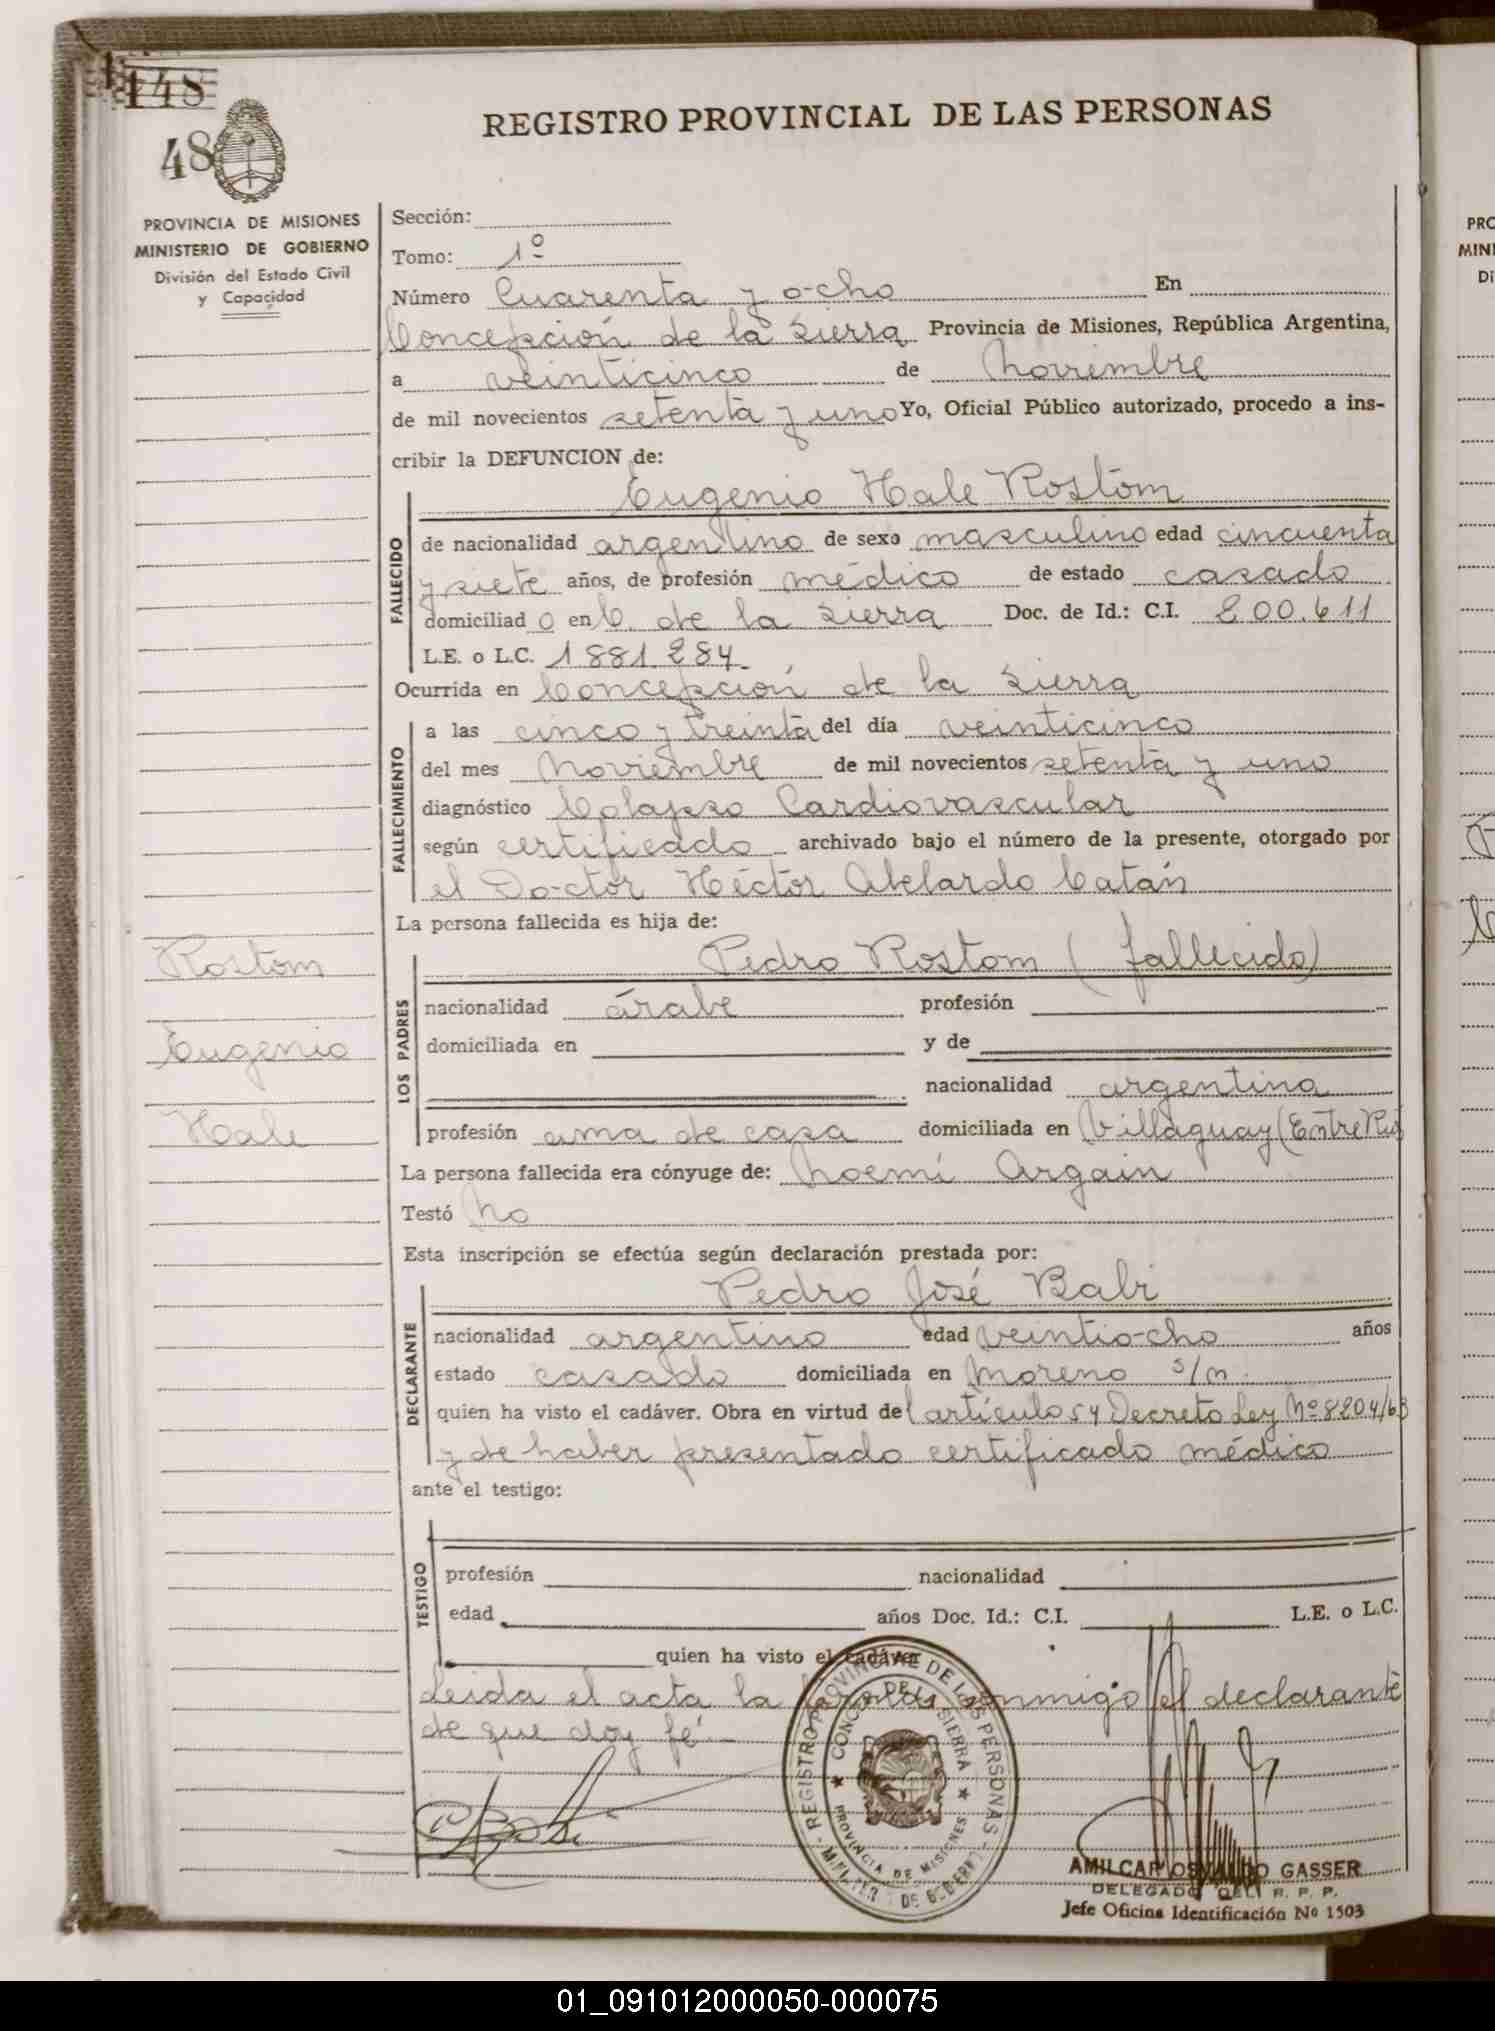 148
48
REGISTRO PROVINCIAL DE LAS PERSONAS
PROVINCIA DE MISIONES
MINISTERIO DE GOBIERNO
División del Estado Civil
y Capacidad
Sección:
Tomo: 1º
Número Cuarenta y ocho En
Concepción de la Sierra Provincia de Misiones, República Argentina,
a veinticinco de Noviembre
de mil novecientos setenta y uno Yo, Oficial Público autorizado, procedo a ins-
cribir la DEFUNCION de:
Eugenio Hale Rostom
FALLECIDO
de nacionalidad argentino de sexo masculino edad cincuenta
y siete años, de profesión médico de estado casado
domiciliado en C. de la Sierra Doc. de Id.: C.I. 200.611
L.E. o L.C. 1881284
Ocurrida en Concepción de la Sierra
FALLECIMIENTO
a las cinco y treinta del día veinticinco
del mes Noviembre de mil novecientos setenta y uno
diagnóstico Colapso Cardiovascular
según certificado archivado bajo el número de la presente, otorgado por
el Doctor Héctor Abelardo Catán
La persona fallecida es hija de:
Rostom
Eugenio
Hale
LOS PADRES
Pedro Rostom (fallecido)
nacionalidad árabe profesión
domiciliada en y de
nacionalidad argentina
profesión ama de casa domiciliada en Villaguay (Entre Ríos
La persona fallecida era cónyuge de: Noemí Argain
Testó No
Esta inscripción se efectúa según declaración prestada por:
DECLARANTE
Pedro José Babi
nacionalidad argentino edad veintiocho años
estado casado domiciliada en Moreno s/n.
quien ha visto el cadáver. Obra en virtud del artículo 54 Decreto Ley Nº 8204/63
y de haber presentado certificado médico
ante el testigo:
TESTIGO
profesión nacionalidad
edad años Doc. Id.: C.I. L.E. o L.C.
quien ha visto el cadáver
Leida el acta la firma conmigo el declarante
de que doy fé.
REGISTRO PROVINCIAL DE LAS PERSONAS
CONCEP. DE LA SIERRA
PROVINCIA DE MISIONES
MINISTERIO DE GOBIERNO
AMILCAR OSVALDO GASSER
DELEGADO DEL R. P. P.
Jefe Oficina Identificación Nº 1503
PRO
MINI
Di
01_091012000050-000075